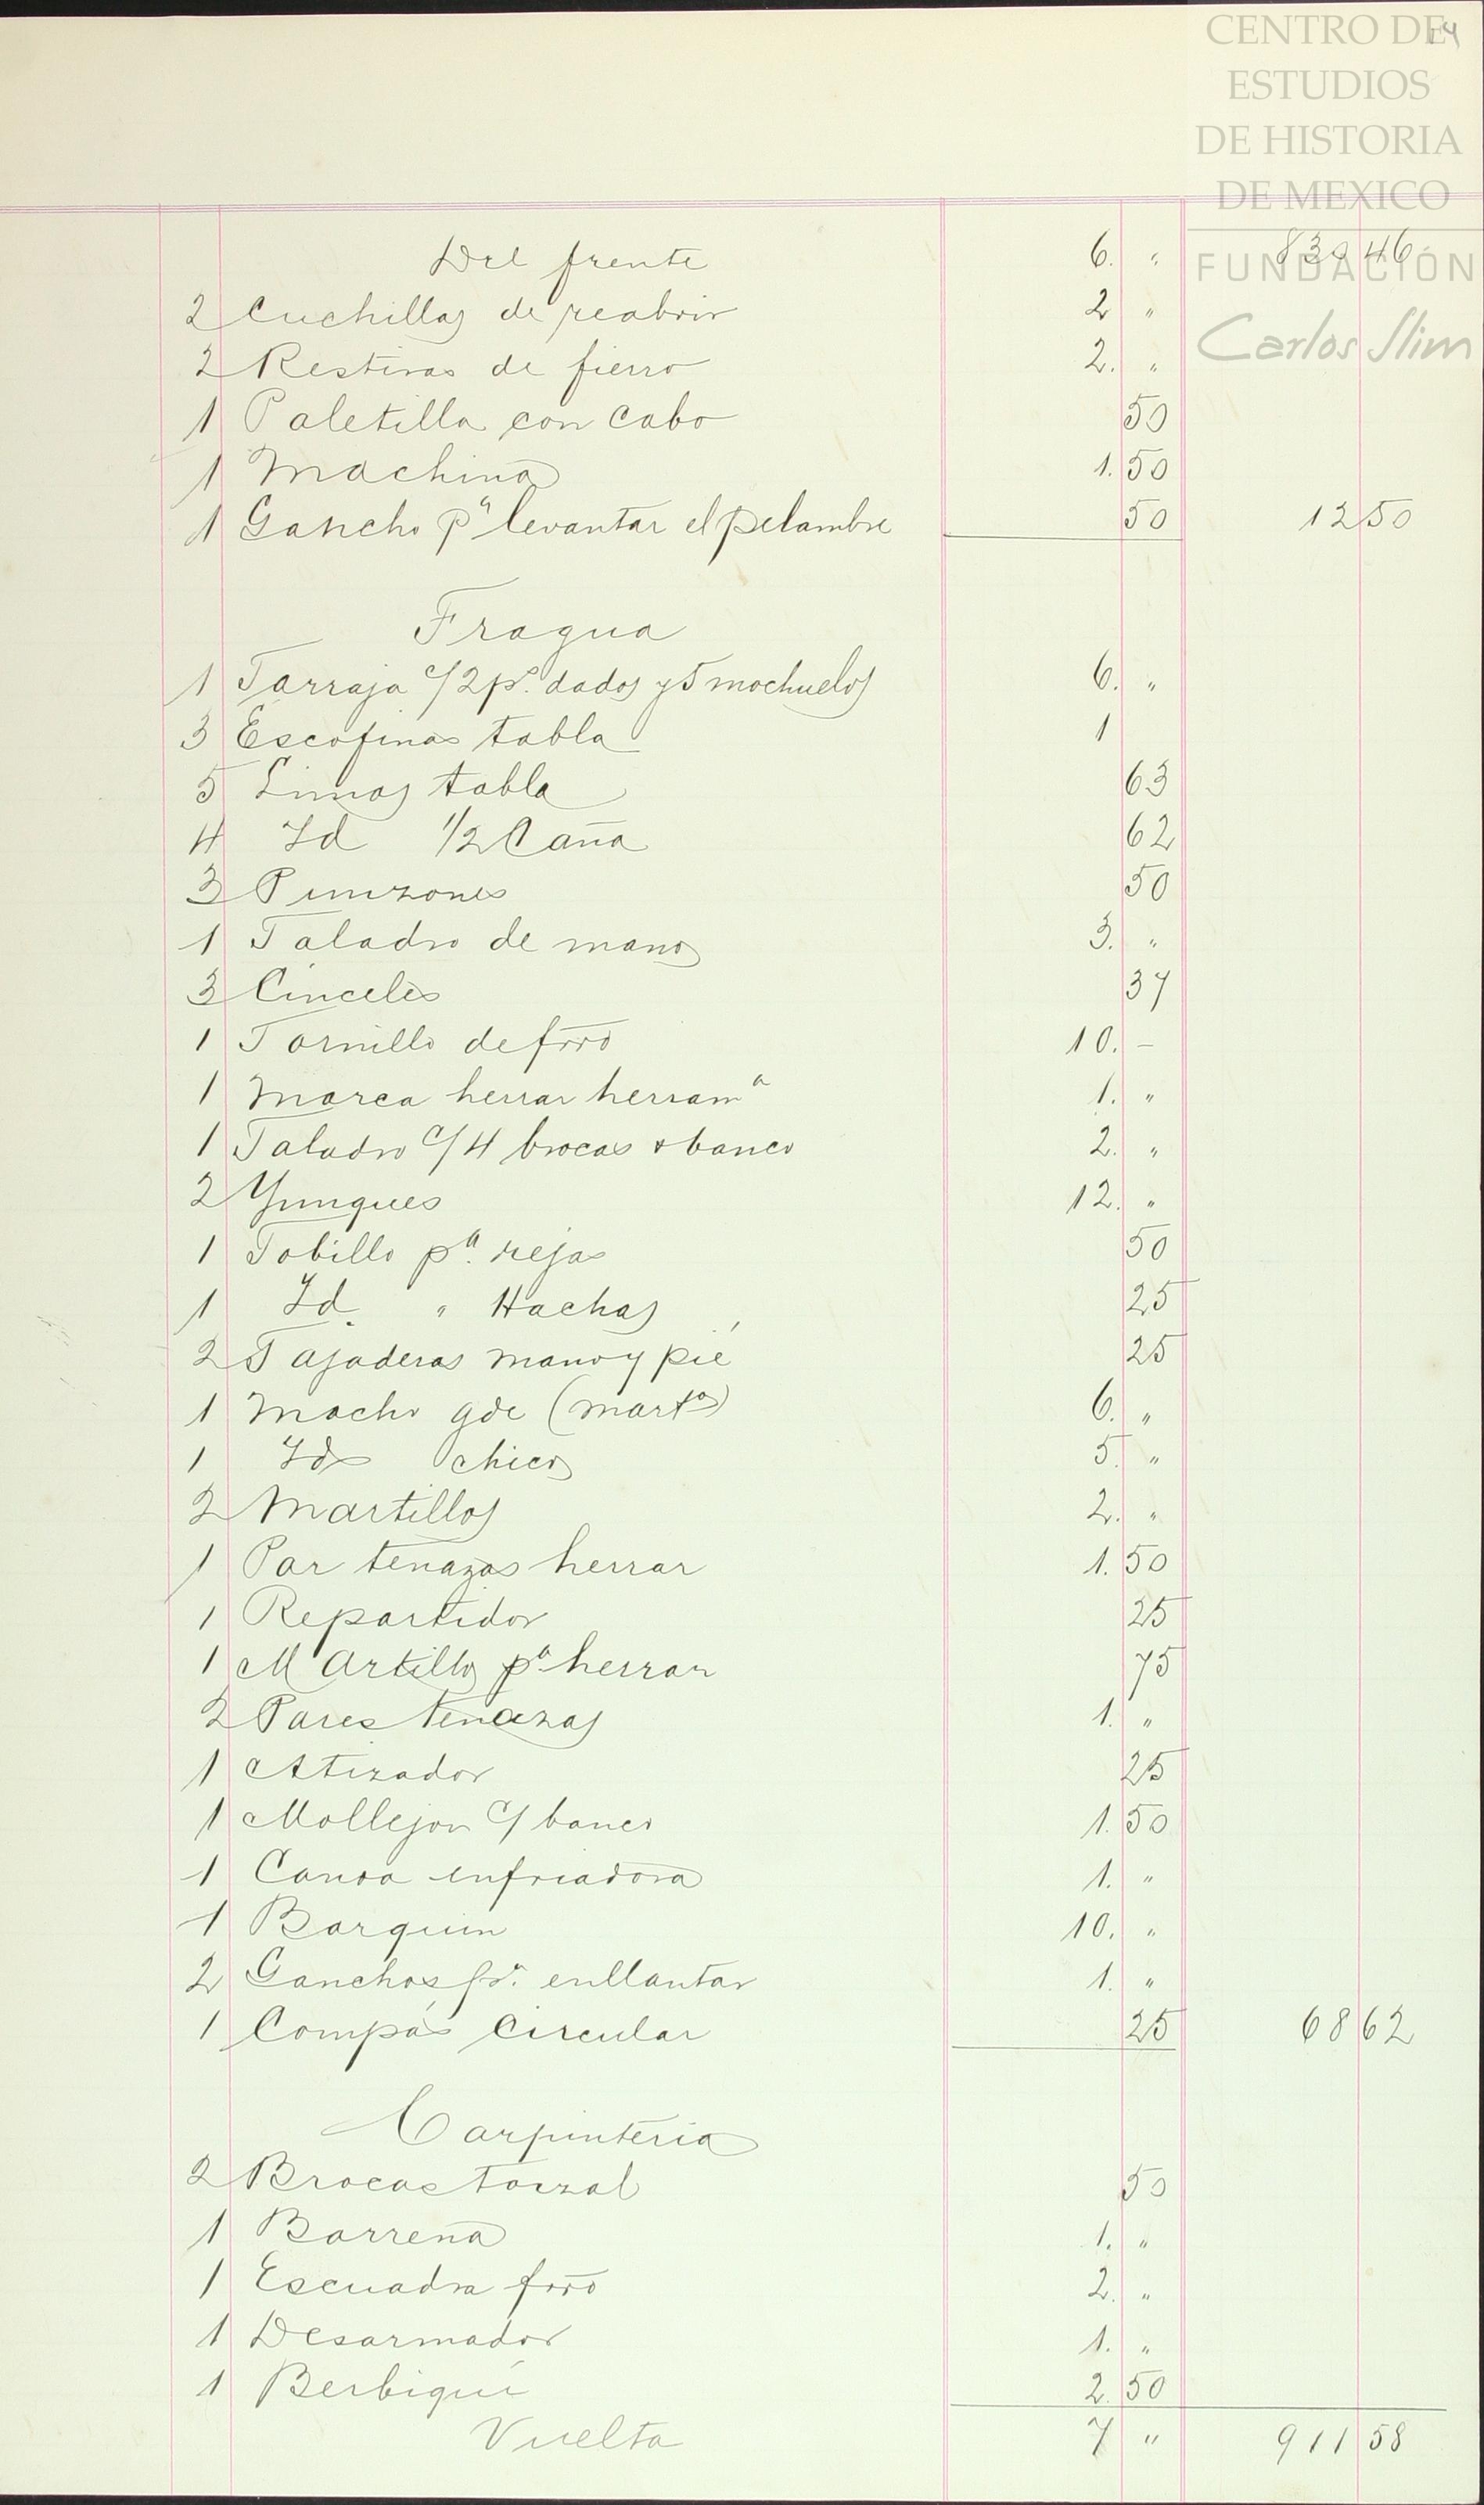 14
CENTRO DE
ESTUDIOS
DE HISTORIA
DE MEXICO
FUNDACIÓN
Carlos Slim
Del frente 6. " 830 46
2 Cuchillas de reabrir 2 "
2 Restiras de fierro 2. "
1 Paletilla con cabo 50
1 Machina 1. 50
1 Gancho pª levantar el pelambre 50 12 50
Fragua
1 Tarraja c/2 ps. dados y 5 mochuelos 6. "
3 Escofinas tabla 1
5 Limas tabla 63
4 Id 1/2 Caña 62
3 Punzones 50
1 Taladro de mano 3. "
3 Cinceles 37
1 Tornillo de frro 10. –
1 Marca herrar herramª 1. "
1 Taladro c/4 brocas & banco 2. "
2 Yunques 12. "
1 Tobillo pª. rejas 50
1 Id. " Hachas 25
2 Tajaderas mano y pié 25
1 Macho gde (marto) 6. "
1 Id chico 5. "
2 Martillos 2. "
1 Par tenazas herrar 1. 50
1 Repartidor 25
1 Martillo pª herrar 75
2 Pares tenazas 1. "
1 Atizador 25
1 Mollejon c/ banco 1. 50
1 Canoa enfriadora 1. "
1 Barquin 10. "
2 Ganchos pª. enllantar 1. "
1 Compás Circular 25 68 62
Carpinteria
2 Brocas torzal 50
1 Barrena 1. "
1 Escuadra frro 2. "
1 Desarmador 1. "
1 Berbiquí 2. 50
Vuelta 7 " 911 58